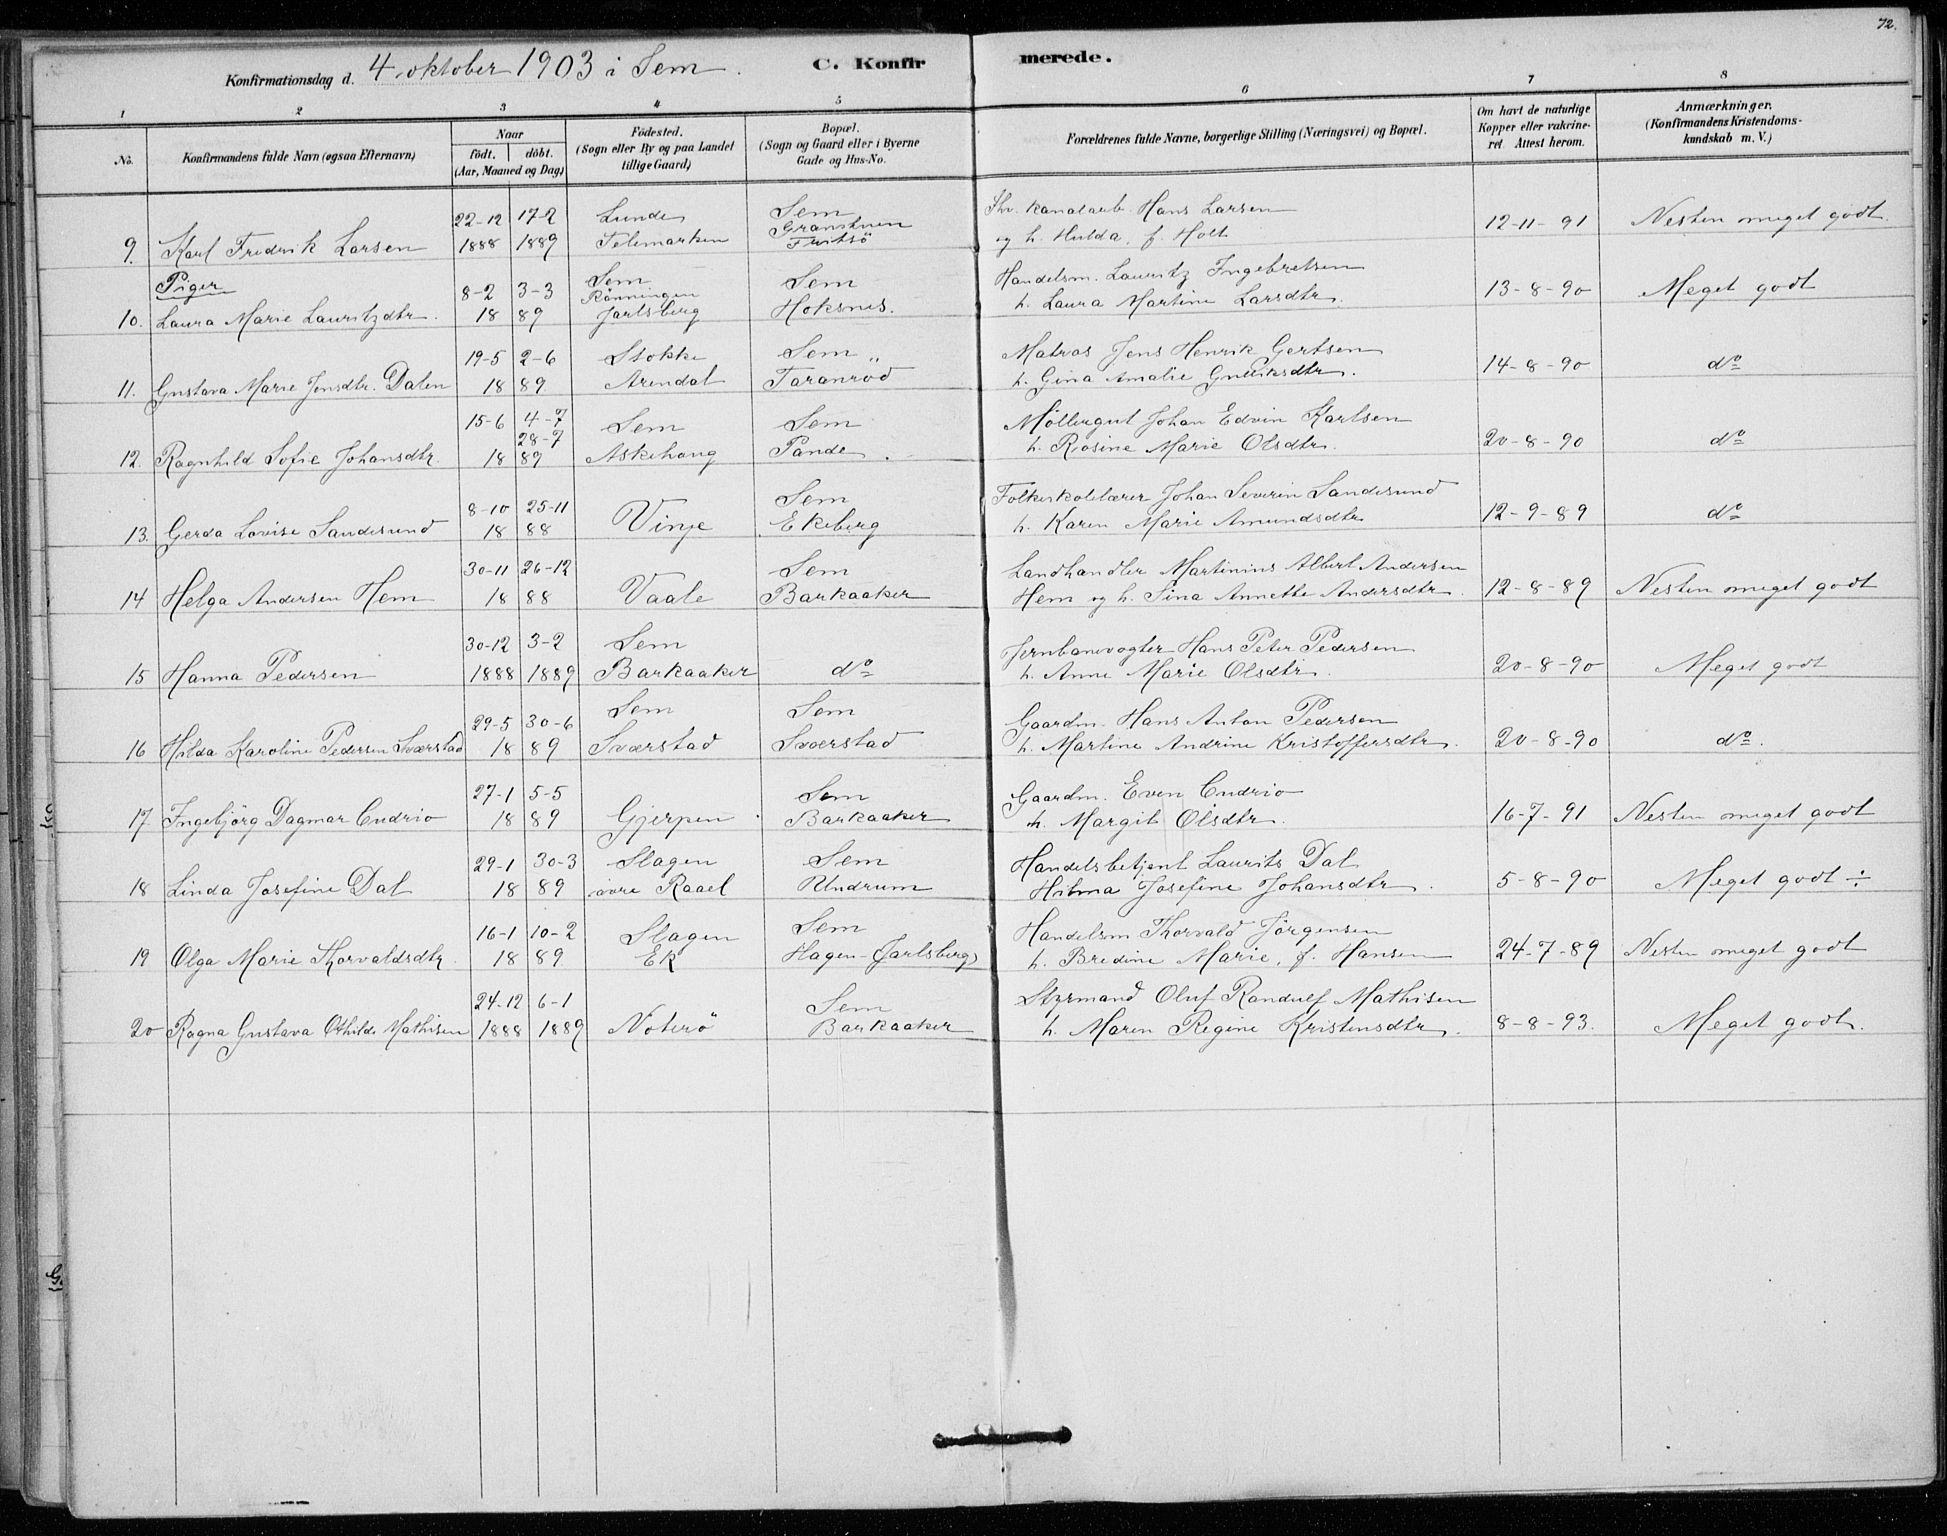 72.
Konfirmationsdag d. 4 oktober 1903 i Sem. C. Konfirmerede.
1 2 3 4 5 6 7 8
No. Konfirmandens fulde Navn (ogsaa Efternavn)
Naar født. døbt. (Aar, Maaned og Dag)
Fødested. (Sogn eller By og paa Landet tillige Gaard)
Bopæl. (Sogn og Gaard eller i Byerne Gade og Hus-No.
Forældrenes fulde Navne, borgerlige Stilling (Næringsvei) og Bopæl.
Om havt de naturlige Kopper eller vakcineret Attest herom.
Anmærkninger. (Konfirmandens Kristendomskundskab m. V.)
22-12 17-2 Lunde Sem kanalarb. Hans Larsen
9. Karl Fredrik Larsen 1888 1889 Telemarken Fritsö og h. Hulda, f. Holt 12-11-91 Nesten meget godt.
Piger
8-2 3-3 Sem Rønningen Sem Handelsm. Lauritz Ingebretsen
10. Laura Marie Lauritzdtr. 18 89 Jarlsberg Hoksnes. h. Laura Martine Larsdtr. 13-8-90 Meget godt
19-5 2-6 Stokke Sem „ Matros Jens Henrik Gertsen
11. Gustava Marie Jensdtr. Dalen 18 89 Arendal Taranrød h. Gina Amalie 14-8-90 do
15-6 4-7 28-7 Sem Sem Møllergut Johan Edvin Karlsen
12. Ragnhild Sofie Johansdtr. 18 89 Askehaug Pande. h. Rosine Marie Olsdtr. 20-8-90 do
8-10 25-11 Sem Folkeskolelærer Johan Severin Sandesund
13. Gerda Lovise Sandesund 18 88 Vinje Ekeberg h. Karen Marie Amundsdtr 12-9-89 do
30-11 26-12 Sem Landhandler Martinius Albert Andersen
14 Helga Andersen Hem 18 88 Vaale Barkaaker Hem og h. Sina Annette Andersdtr. 12-8-89 Nesten meget godt
30-12 3-2 Sem Jernbanevogter Hans Peter Pedersen
15 Hanna Pedersen 1888 1889 Barkaaker do h. Anne Marie Olsdtr. 20-8-90 Meget godt
29-5 30-6 Sem Sem Gaardm. Hans Anton Pedersen
16 Hilda Karoline Pedersen Sværstad 18 89 Sværstad Sværstad h. Martine Andrine Kristoffersdtr. 20-8-90 do.
27-1 5-5 Sem Gaardm. Even Cudrio
17. Ingebjörg Dagmar Cudrio 18 89 Gjerpen. Barkaaker h. Margit Olsdtr. 16-7-91 Nesten meget godt
29-1 30-3 Slagen Sem Handelsbetjent Laurits Dal
18 Linda Josefine Dal 18 89 øvre Raael Undrum Hilma Josefine Johansdtr. 5-8-90 Meget godt ÷
16-1 10-2 Slagen Sem Handelsm Thorvald Jørgensen
19 Olga Marie Thorvaldsdtr. 18 89 Ek Hagen-(Jarlsberg) h. Bredine Marie, f. Hansen 24-7-89 Nesten meget godt
24-12 6-1 Sem Styrmand Oluf Randulf Mathisen
20 Ragna Gustava Othilde Mathisen 1888 1889 Nøterö Barkaaker h. Maren Regine Kristensdtr. 8-8-93. Meget godt.